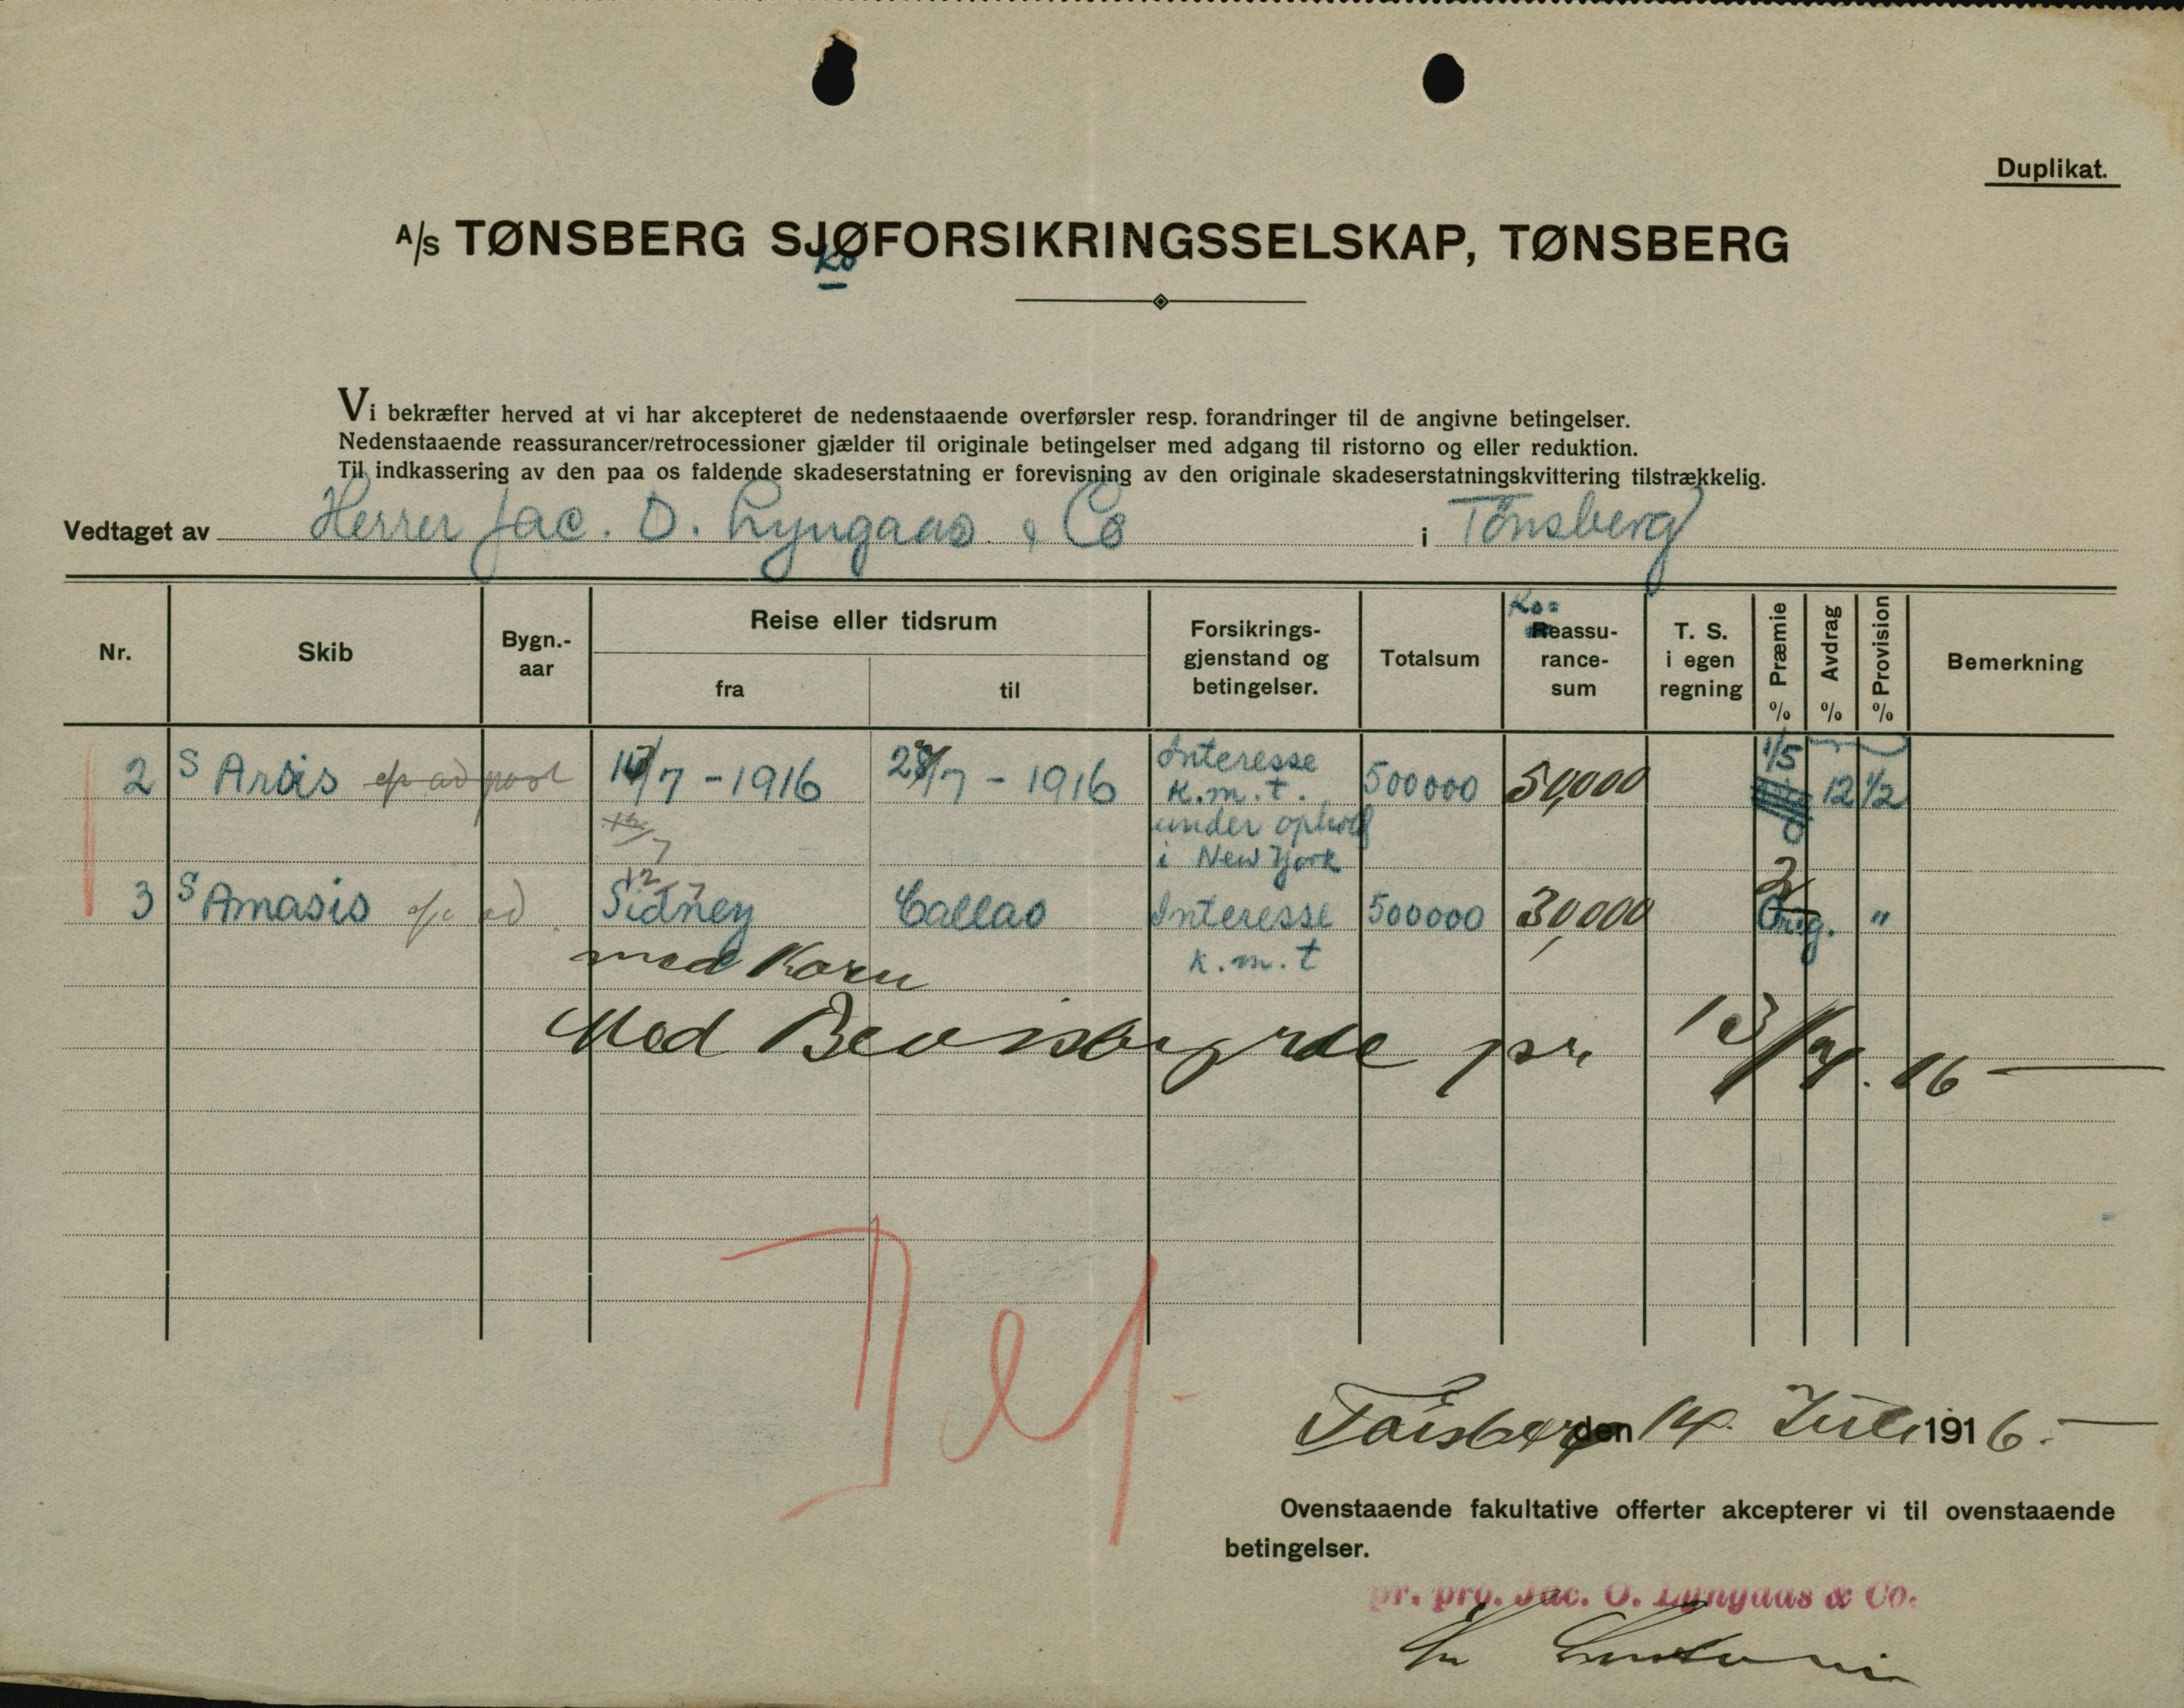 Duplikat.
A/S TØNSBERG SJØFORSIKRINGSSELSKAP, TØNSBERG
Ko
Vi bekræfter herved at vi har akcepteret de nedenstaaende overførsler resp. forandringer til de angivne betingelser.
Nedenstaaende reassurancer/retrocessioner gjælder til originale betingelser med adgang til ristorno og eller reduktion.
Til indkassering av den paa os faldende skadeserstatning er forevisning av den originale skadeserstatningskvittering tilstrækkelig.
Vedtaget av Herrer Jac. O. Lyngaas & Co i Tønsberg
Nr. Skib Bygn.-aar Reise eller tidsrum fra til Forsikrings-gjenstand og betingelser. Totalsum Ko= Reassu-rance-sum T. S. i egen regning Præmie % Avdrag % Provision % Bemerkning
2 S Arvis /7 - 1916 /7 - 1916 Interesse 500000 50,000 1/5 12 1/2
K.m.t.
under ophold
i New York
12/7
3 S Amasis Sidney Callao Interesse 500000 30,000 Orig. "
med Korn k.m.t
Med pr. 13/ . 16
Def
Tønsberg den 14. Juli 1916.
Ovenstaaende fakultative offerter akcepterer vi til ovenstaaende
betingelser.
pr. pro. Jac. O. Lyngaas & Co.